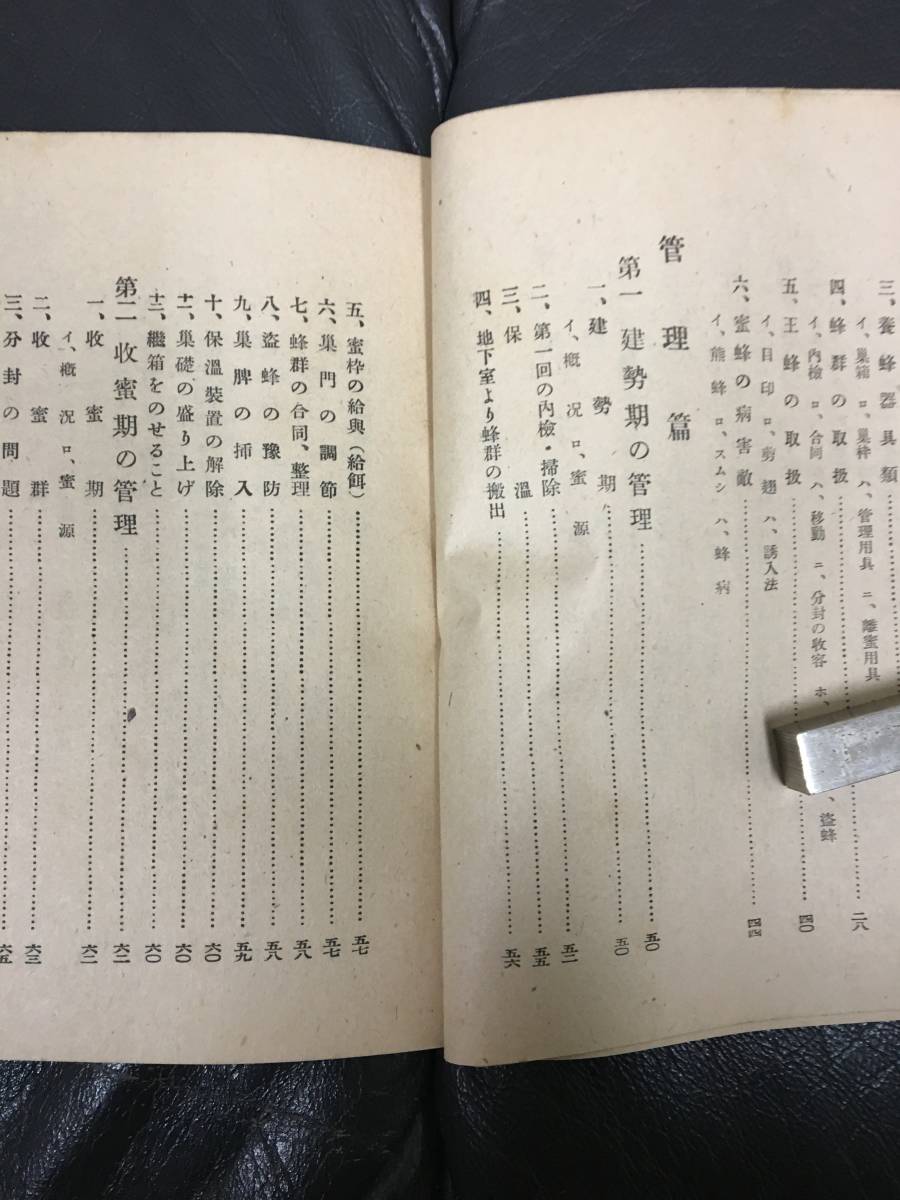 三、養蜂器具類
イ、巣箱 ロ、巣枠 ハ、管理用具 ニ、離蜜用具
四、蜂群の取扱……二八
イ、内檢 ロ、合同 ハ、移動 ニ、分封の收容 ホ、 、盜蜂
五、王蜂の取扱……四〇
イ、目印 ロ、剪翅 ハ、誘入法
六、蜜蜂の病害敵……四四
イ、熊蜂 ロ、スムシ ハ、蜂病
管理篇
第一 建勢期の管理……五〇
一、建勢期……五〇
イ、概況 ロ、蜜源
二、第一回の內檢・掃除……五二
三、保溫……五五
四、地下室より蜂群の搬出……五六
五、蜜枠の給與(給餌)……五七
六、巣門の調節……五七
七、蜂群の合同、整理……五八
八、盜蜂の豫防……五八
九、巣脾の挿入……五九
十、保溫裝置の解除……六〇
十一、巣礎の盛り上げ……六〇
十二、繼箱をのせること……六〇
第二 收蜜期の管理……六二
一、收蜜期……六二
イ、概況 ロ、蜜源
二、收蜜群……六三
三、分封の問題……六五